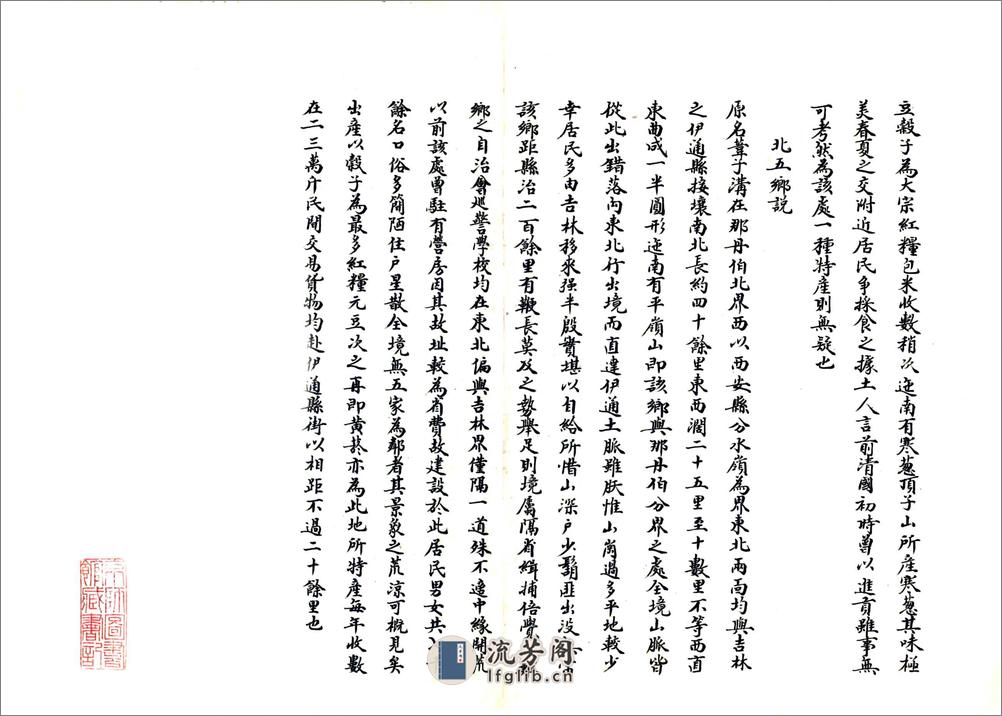 豆穀子為大宗紅糧包米收數稍次迤南有寒葱頂子山所産寒葱其味極
美春夏之交附近居民爭採食之據土人言前清國初時曾以進貢雖事無
可考然為該處一種特産則無疑也
北五鄉說
原名葦子溝在那丹伯北界西以西安縣分水嶺為界東北兩面均與吉林
之伊通縣接壤南北長約四十餘里東西濶二十五里至十數里不等西直
東曲成一半圓形迤南有平嶺山即該鄉與那丹伯分界之處全境山脈皆
從此出錯落向東北行出境而直達伊通土脈雖肥惟山崗過多平地較少
幸居民多由吉林移來强半殷實堪以自給所惜山深戶少鬍匪出没
該鄉距縣治二百餘里有鞭長莫及之勢舉足則境屬隔省緝捕倍覺
鄉之自治會巡警學校均在東北偏與吉林界僅隔一道殊不適中緣開荒
以前該處曾駐有營房因其故址較為省費故建設於此居民男女共
餘名口俗多簡陋住戶星散全境無五家為鄰者其景象之荒涼可概見矣
出産以穀子為最多紅糧元豆次之再即黄菸亦為此地所特産每年收數
在二三萬斤民間交易貨物均赴伊通縣街以相距不過二十餘里也
流芳阁
lfglib.cn